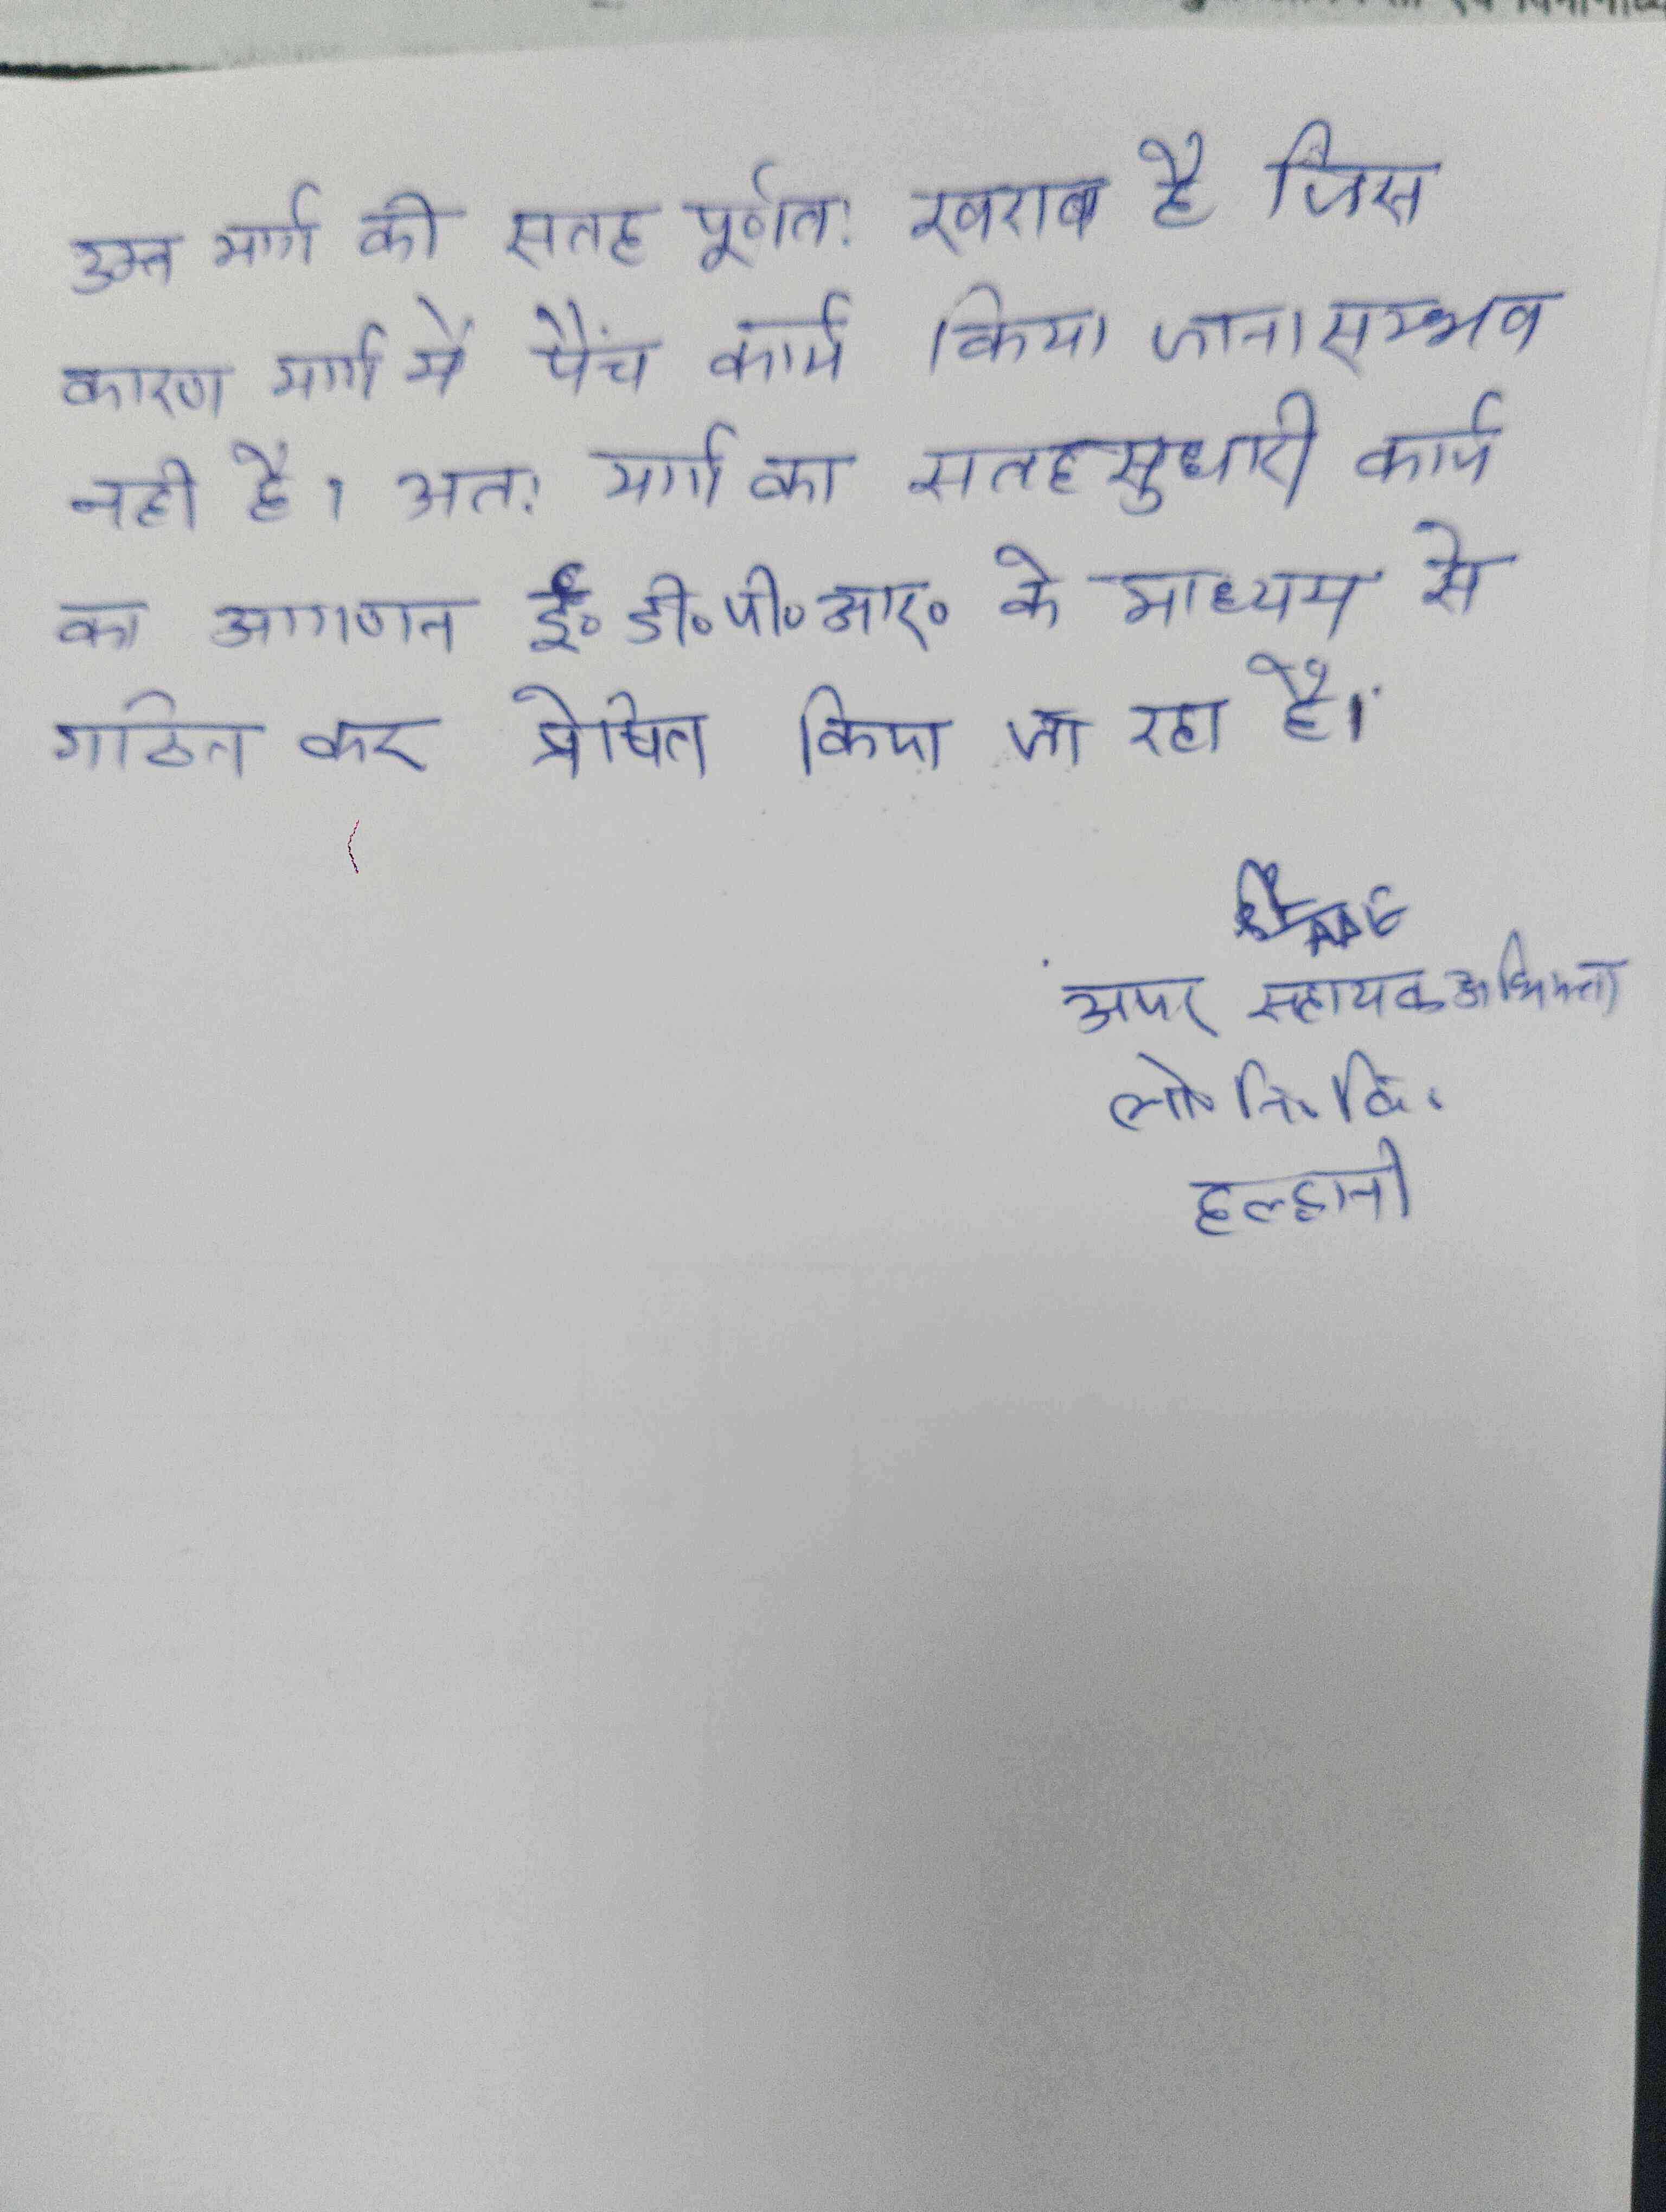 उक्त मार्ग की सतह पूर्णतः खराब है जिस
कारण मार्ग में पैंच कार्य किया जाना सम्भव
नही है। अतः मार्ग का सतह सुधारी कार्य
का आगणन ई० डी० पी० आर० के माध्यम से
गठित कर प्रेषित किया जा रहा है।
अपर सहायक अभियन्ता
लो० नि० वि०
हल्द्वानी